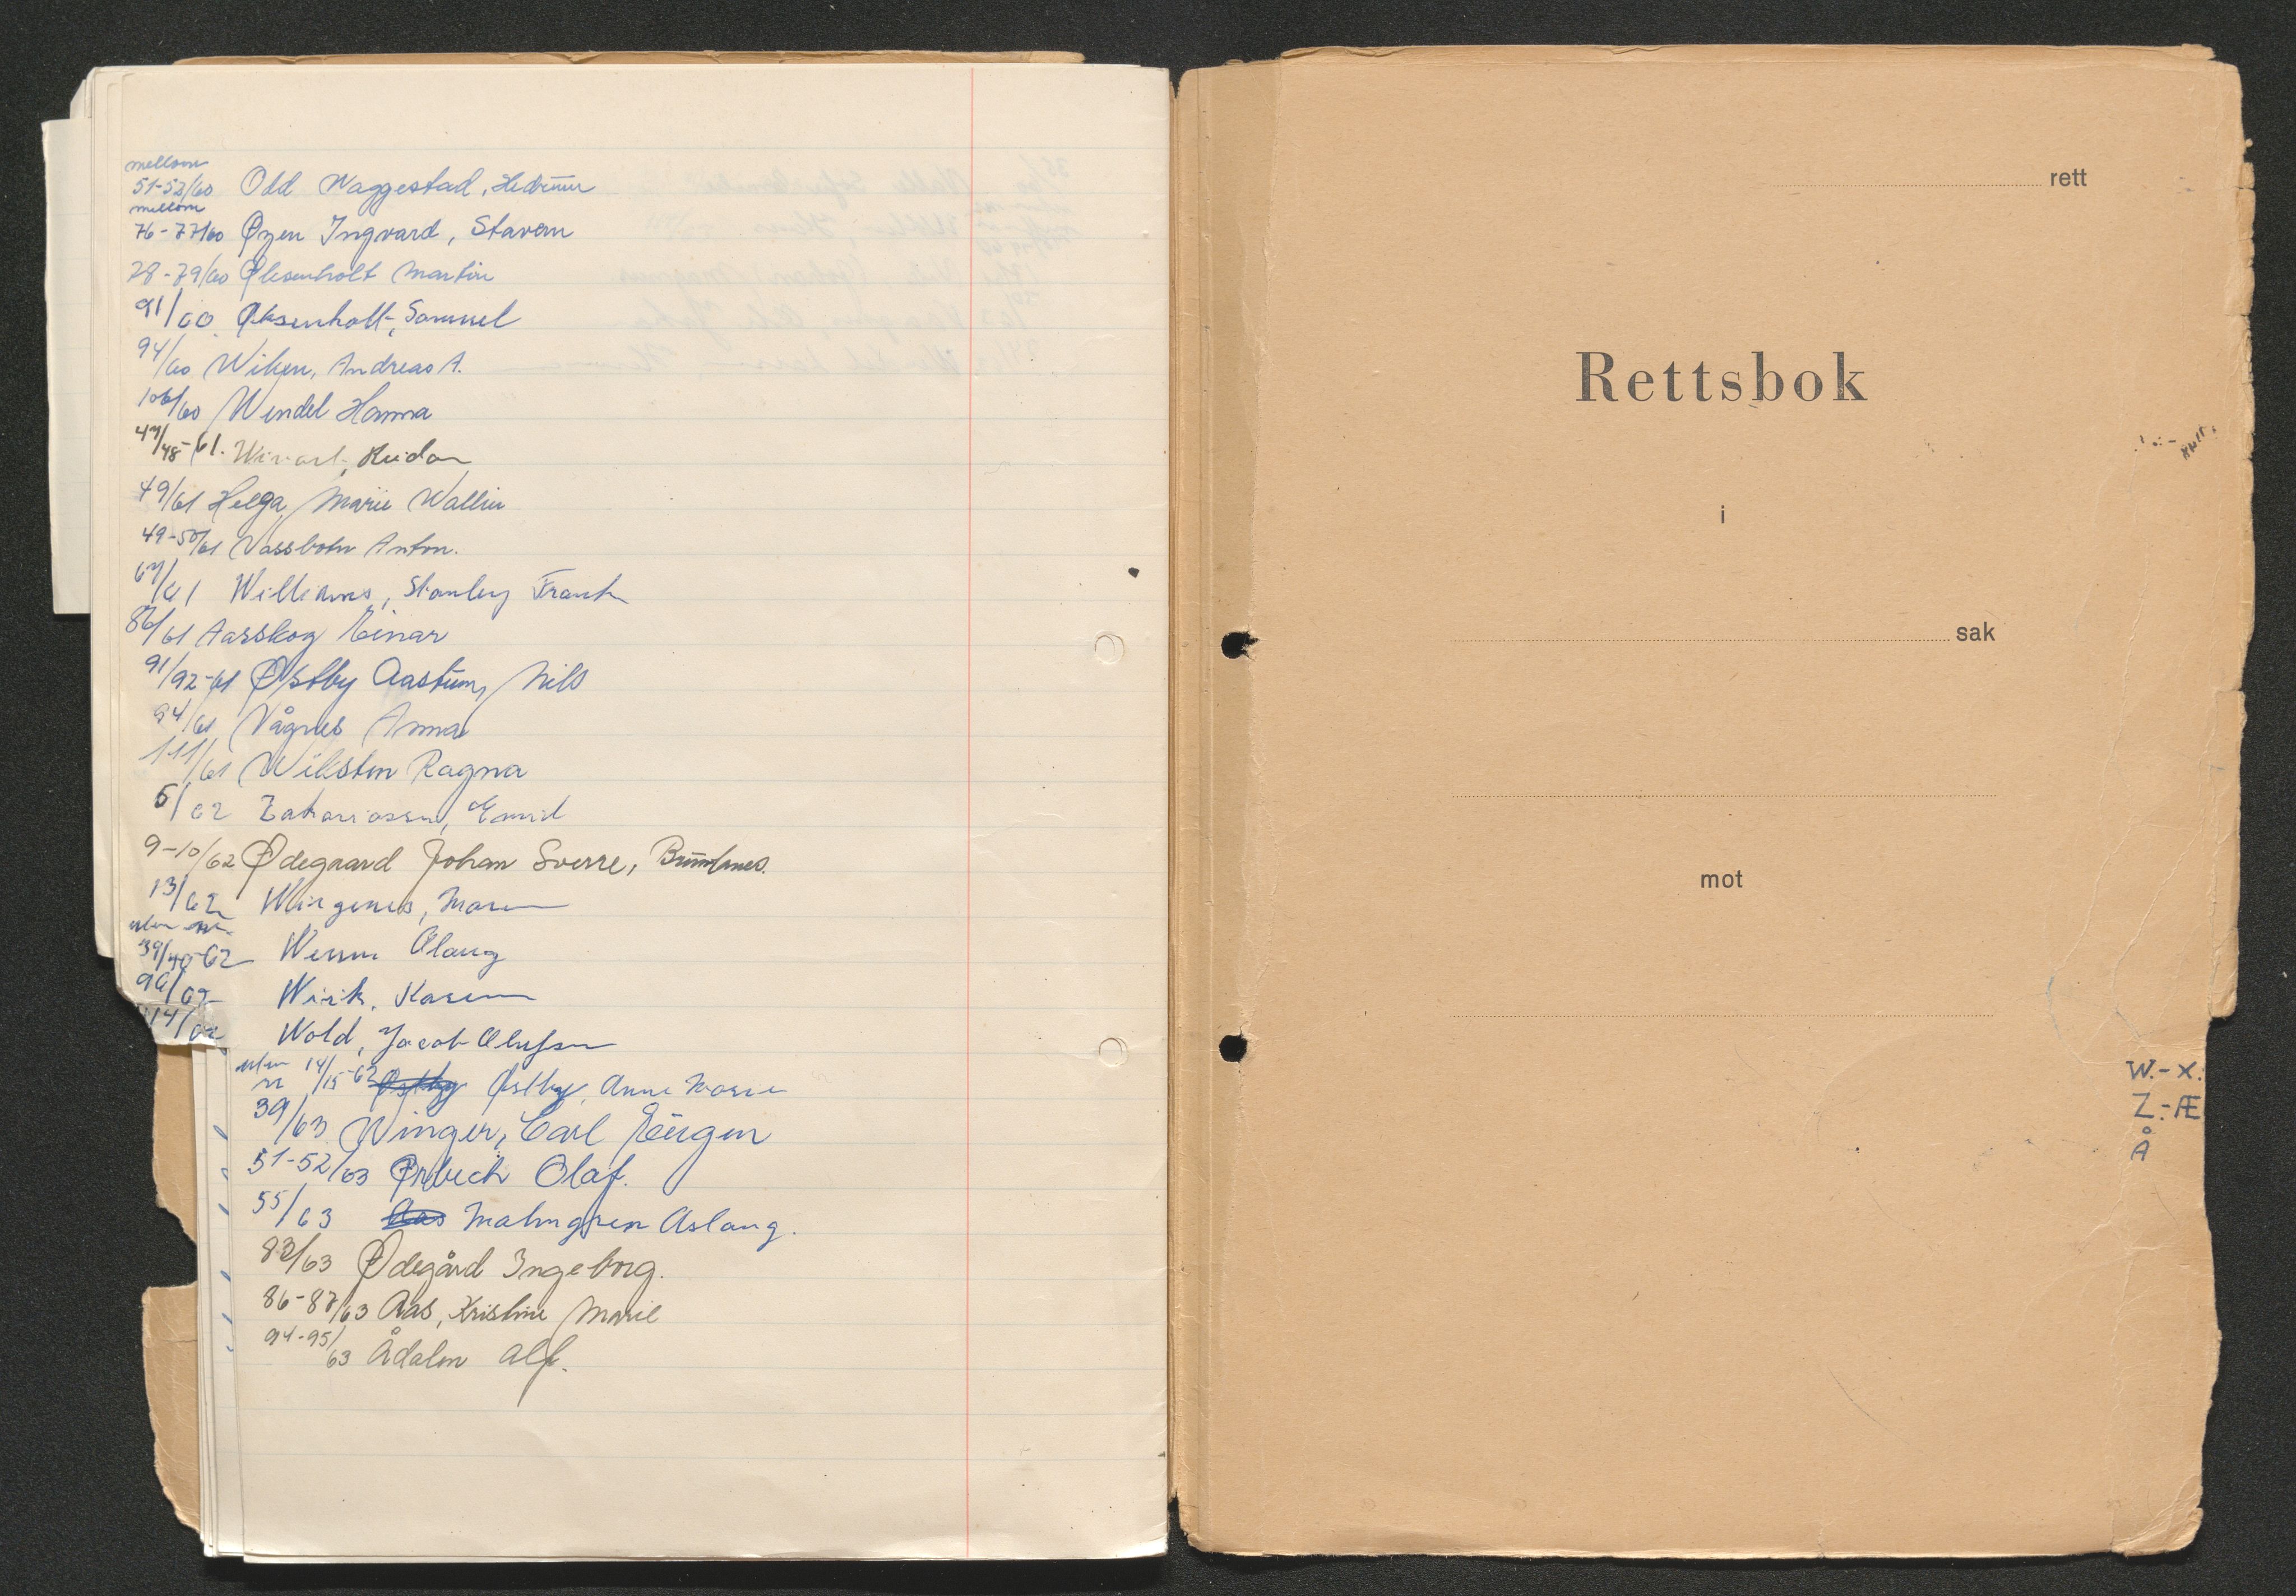 mellom
51-52/60 Odd Waggestad, Hedrum
mellom
76-77/60 Øyen Ingvard, Stavern
78-79/60 Øksenholt Martin
91/60 Øksenholt, Samuel
94/60 Wiken, Andreas A.
106/60 Wendel Hanna
47/48-61. Reidar
49/61 Helga Marie Wallin
49-50/61 Vassbotn Anton.
67/61 Williams, Stanley Frank
86/61 Aarskog Einar
91/92-61 Østby Aastum, Nils
94/61 Vågnes Anna
111/61 Wilksten Ragna
5/62 Zakariassen, Emil
9-10/62 Ødegaard Johan Sverre, Brunlanes.
13/62 Wirgenes, Maren
uten nr.
39/40-62 Olaug
96/62 Wirik, Karen
114/62 Wold, Jacob Olufsen
uten nr 14/15-62 Østby Østby, Anne Marie
39/63 Winger, Carl Jürgen
51-52/63 Ørbeck Olaf.
55/63 Aas Malmgren Aslaug.
83/63 Ødegård Ingeborg.
86-87/63 Aas, Kristine Marie
94-95/63 Ådalen Alf.
rett
Rettsbok
i
sak
mot
W.-X.
Z.-Æ
Å